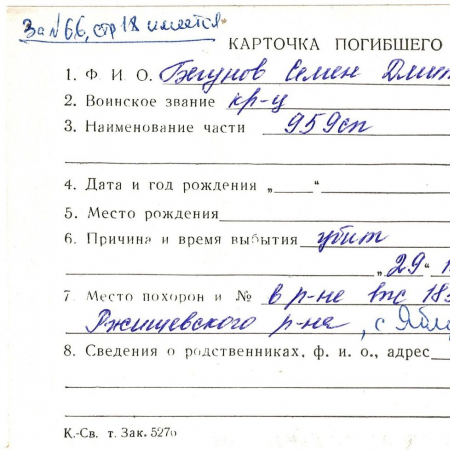 За № 66, стр 18 имеется
КАРТОЧКА ПОГИБШЕГО
1. Ф. И. О. Бегунов Семен Дмит
2. Воинское звание кр-ц
3. Наименование части 959сп
4. Дата и год рождения „ “
5. Место рождения
6. Причина и время выбытия убит
„29“
7. Место похорон и № в р-не выс 18
Ржищевского р-на, с Ябл
8. Сведения о родственниках, ф. и. о., адрес
К.-Св. т. Зак. 527о